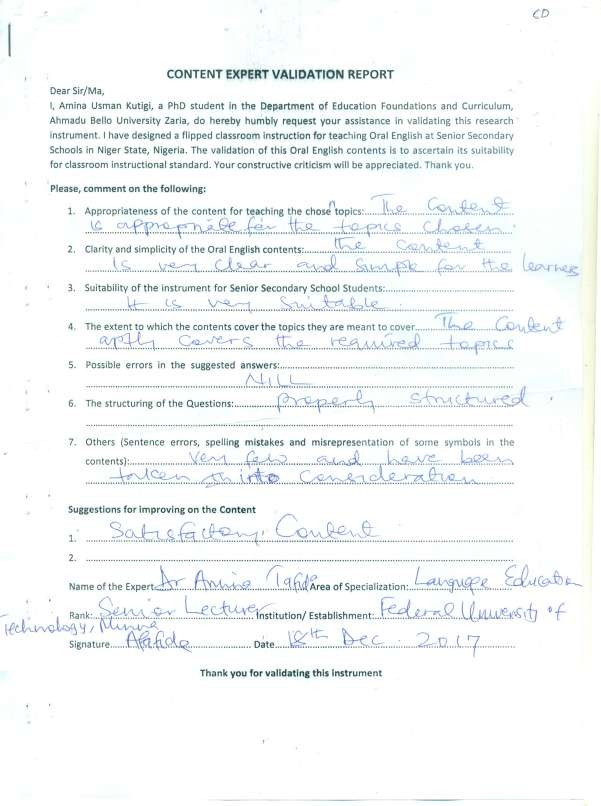 CD
CONTENT EXPERT VALIDATION REPORT
Dear Sir/Ma,
I, Amina Usman Kutigi, a PhD student in the Department of Education Foundations and Curriculum,
Ahmadu Bello University Zaria, do hereby humbly request your assistance in validating this research
instrument. I have designed a flipped classroom instruction for teaching Oral English at Senior Secondary
Schools in Niger State, Nigeria. The validation of this Oral English contents is to ascertain its suitability
for classroom instructional standard. Your constructive criticism will be appreciated. Thank you.
Please, comment on the following:
1. Appropriateness of the content for teaching the chose^n topics: The Content
is appropriate for the topics chosen.
2. Clarity and simplicity of the Oral English contents: the content
Is very clear and simple for the learners
3. Suitability of the instrument for Senior Secondary School Students:
It is very Suitable.
4. The extent to which the contents cover the topics they are meant to cover. The Content
aptly covers the required topics
5. Possible errors in the suggested answers:
NILL
6. The structuring of the Questions: properly structured.
7. Others (Sentence errors, spelling mistakes and misrepresentation of some symbols in the
contents): Very few and have been
taken into consideration
Suggestions for improving on the Content
1. Satisfactory Content
2.
Name of the Expert Dr Amina Tafida Area of Specialization: Language Education
Rank: Senior Lecturer Institution/ Establishment: Federal University of
Technology, Minna
Signature Afafida Date 18th Dec. 2017
Thank you for validating this instrument